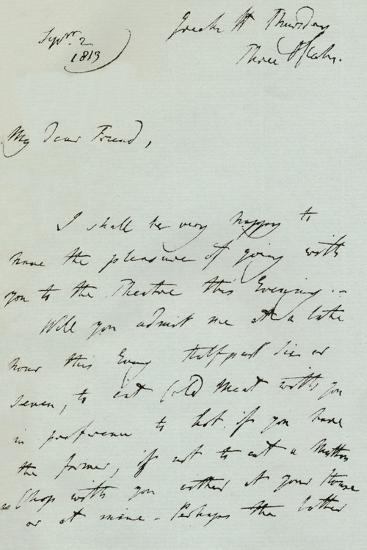 Sepr. 2
1813
Great St Thursday
Three
My Dear Friend,
I shall be very happy to
have the pleasure of going with
you to the Theatre this Evening.-
Will you admit me at a late
hour this Eveng half past Six or
Seven, to eat Cold Meat with you
in preference to hot if you have
the former, if not to eat a Mutton
Chop with you either at your House
or at mine - Perhaps the latter